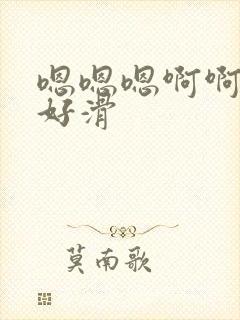 嗯嗯嗯啊啊
好滑
莫南歌